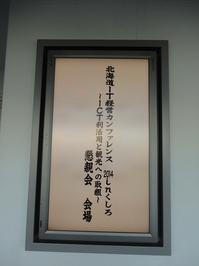 北海道IT経営カンファレンス2014しれくしろ
～ICT利活用と観光への取組～
懇親会 会場